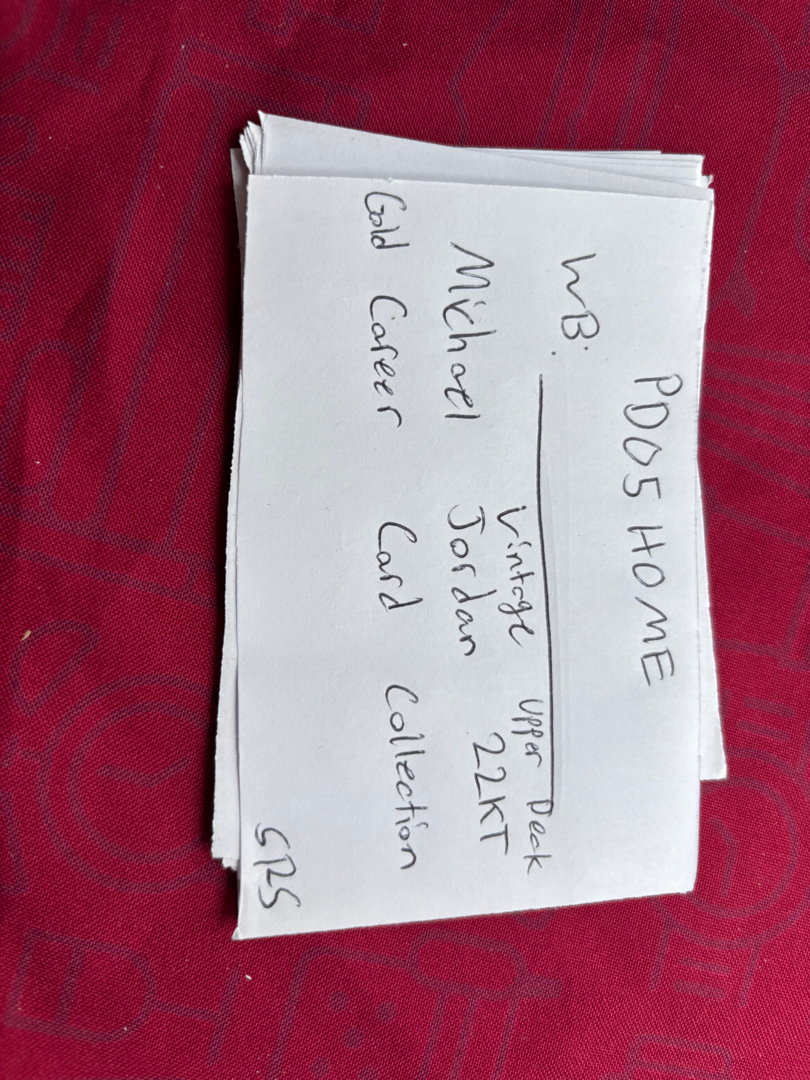 PD05HOME
WB:
Vintage Upper Deck
Michael Jordan 22KT
Gold Career Card Collection